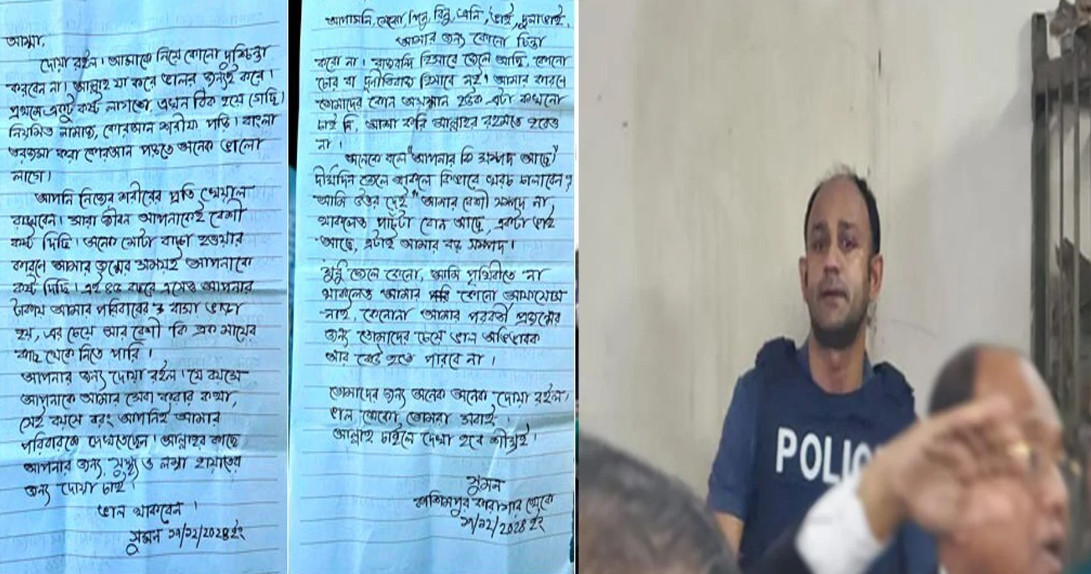 আম্মা,
দোয়া রইল। আমাকে নিয়ে কোনো দুশ্চিন্তা
করবেন না। আল্লাহ যা করে ভালর জন্যই করে।
প্রথমে একটু কষ্ট লাগতো, এখন ঠিক হয়ে গেছি।
নিয়মিত নামাজ, কোরআন শরীফ পড়ি। বাংলা
তরজমা করা কোরআন পড়তে অনেক ভালো
লাগে।
আপনি নিজের শরীরের প্রতি খেয়াল
রাখবেন। সারা জীবন আপনাকেই বেশী
কষ্ট দিছি। অনেক মোটা বাচ্চা হওয়ার
কারনে আমার জন্মের সময়ই আপনাকে
কষ্ট দিছি। এই ৪৫ বছরে এসেও আপনার
টাকায় আমার পরিবারের বাসা ভাড়া
হয়, এর চেয়ে আর বেশী কি এক মায়ের
কাছ থেকে নিতে পারি।
আপনার জন্য দোয়া রইল। যে বয়সে
আপনাকে আমার সেবা করার কথা,
সেই বয়সে বরং আপনিই আমার
পরিবারকে দেখতেছেন। আল্লাহর কাছে
আপনার জন্য সুস্থ্য ও লম্বা হায়াতের
জন্য দোয়া চাই।
ভাল থাকবেন।
সুমন ২৭/১২/২০২৪ ইং
আপাসনি, হেনো, রিতু, এনি, ভাই, দুলাভাই,
আমার জন্য কোনো চিন্তা
করো না। রাজবন্দি হিসাবে জেলে আছি, কোনো
চোর বা দুর্নীতিবাজ হিসাবে নই। আমার কারনে
তোমাদের কোন অসম্মান হউক এটা কখনো
চাই নি, আশা করি আল্লাহর রহমতে হবেও
না।
অনেকে বলে "আপনার কি সম্পদ আছে?
দীর্ঘদিন জেলে থাকলে কিভাবে খরচ চালাবেন?
আমি উত্তর দেই "আমার বেশী সম্পদ না
থাকলেও পাঁচটা বোন আছে, একটা ভাই
আছে, এটাই আমার বড় সম্পদ।
শুধু জেলে কেনো, আমি পৃথিবীতে না
থাকলেও আমার কোনো আফসোস
নাই, কেনোনা আমার পরবর্তী প্রজন্মের
জন্য তোমাদের চেয়ে ভাল অভিভাবক
আর কেউ হতে পারবে না।
তোমাদের জন্য অনেক অনেক দোয়া রইল,
ভাল থেকো তোমরা সবাই,
আল্লাহ চাইলে দেখা হবে শীঘ্রই।
সুমন
কাশিমপুর কারাগার থেকে
২৭/১২/২০২৪ ইং
POLIC